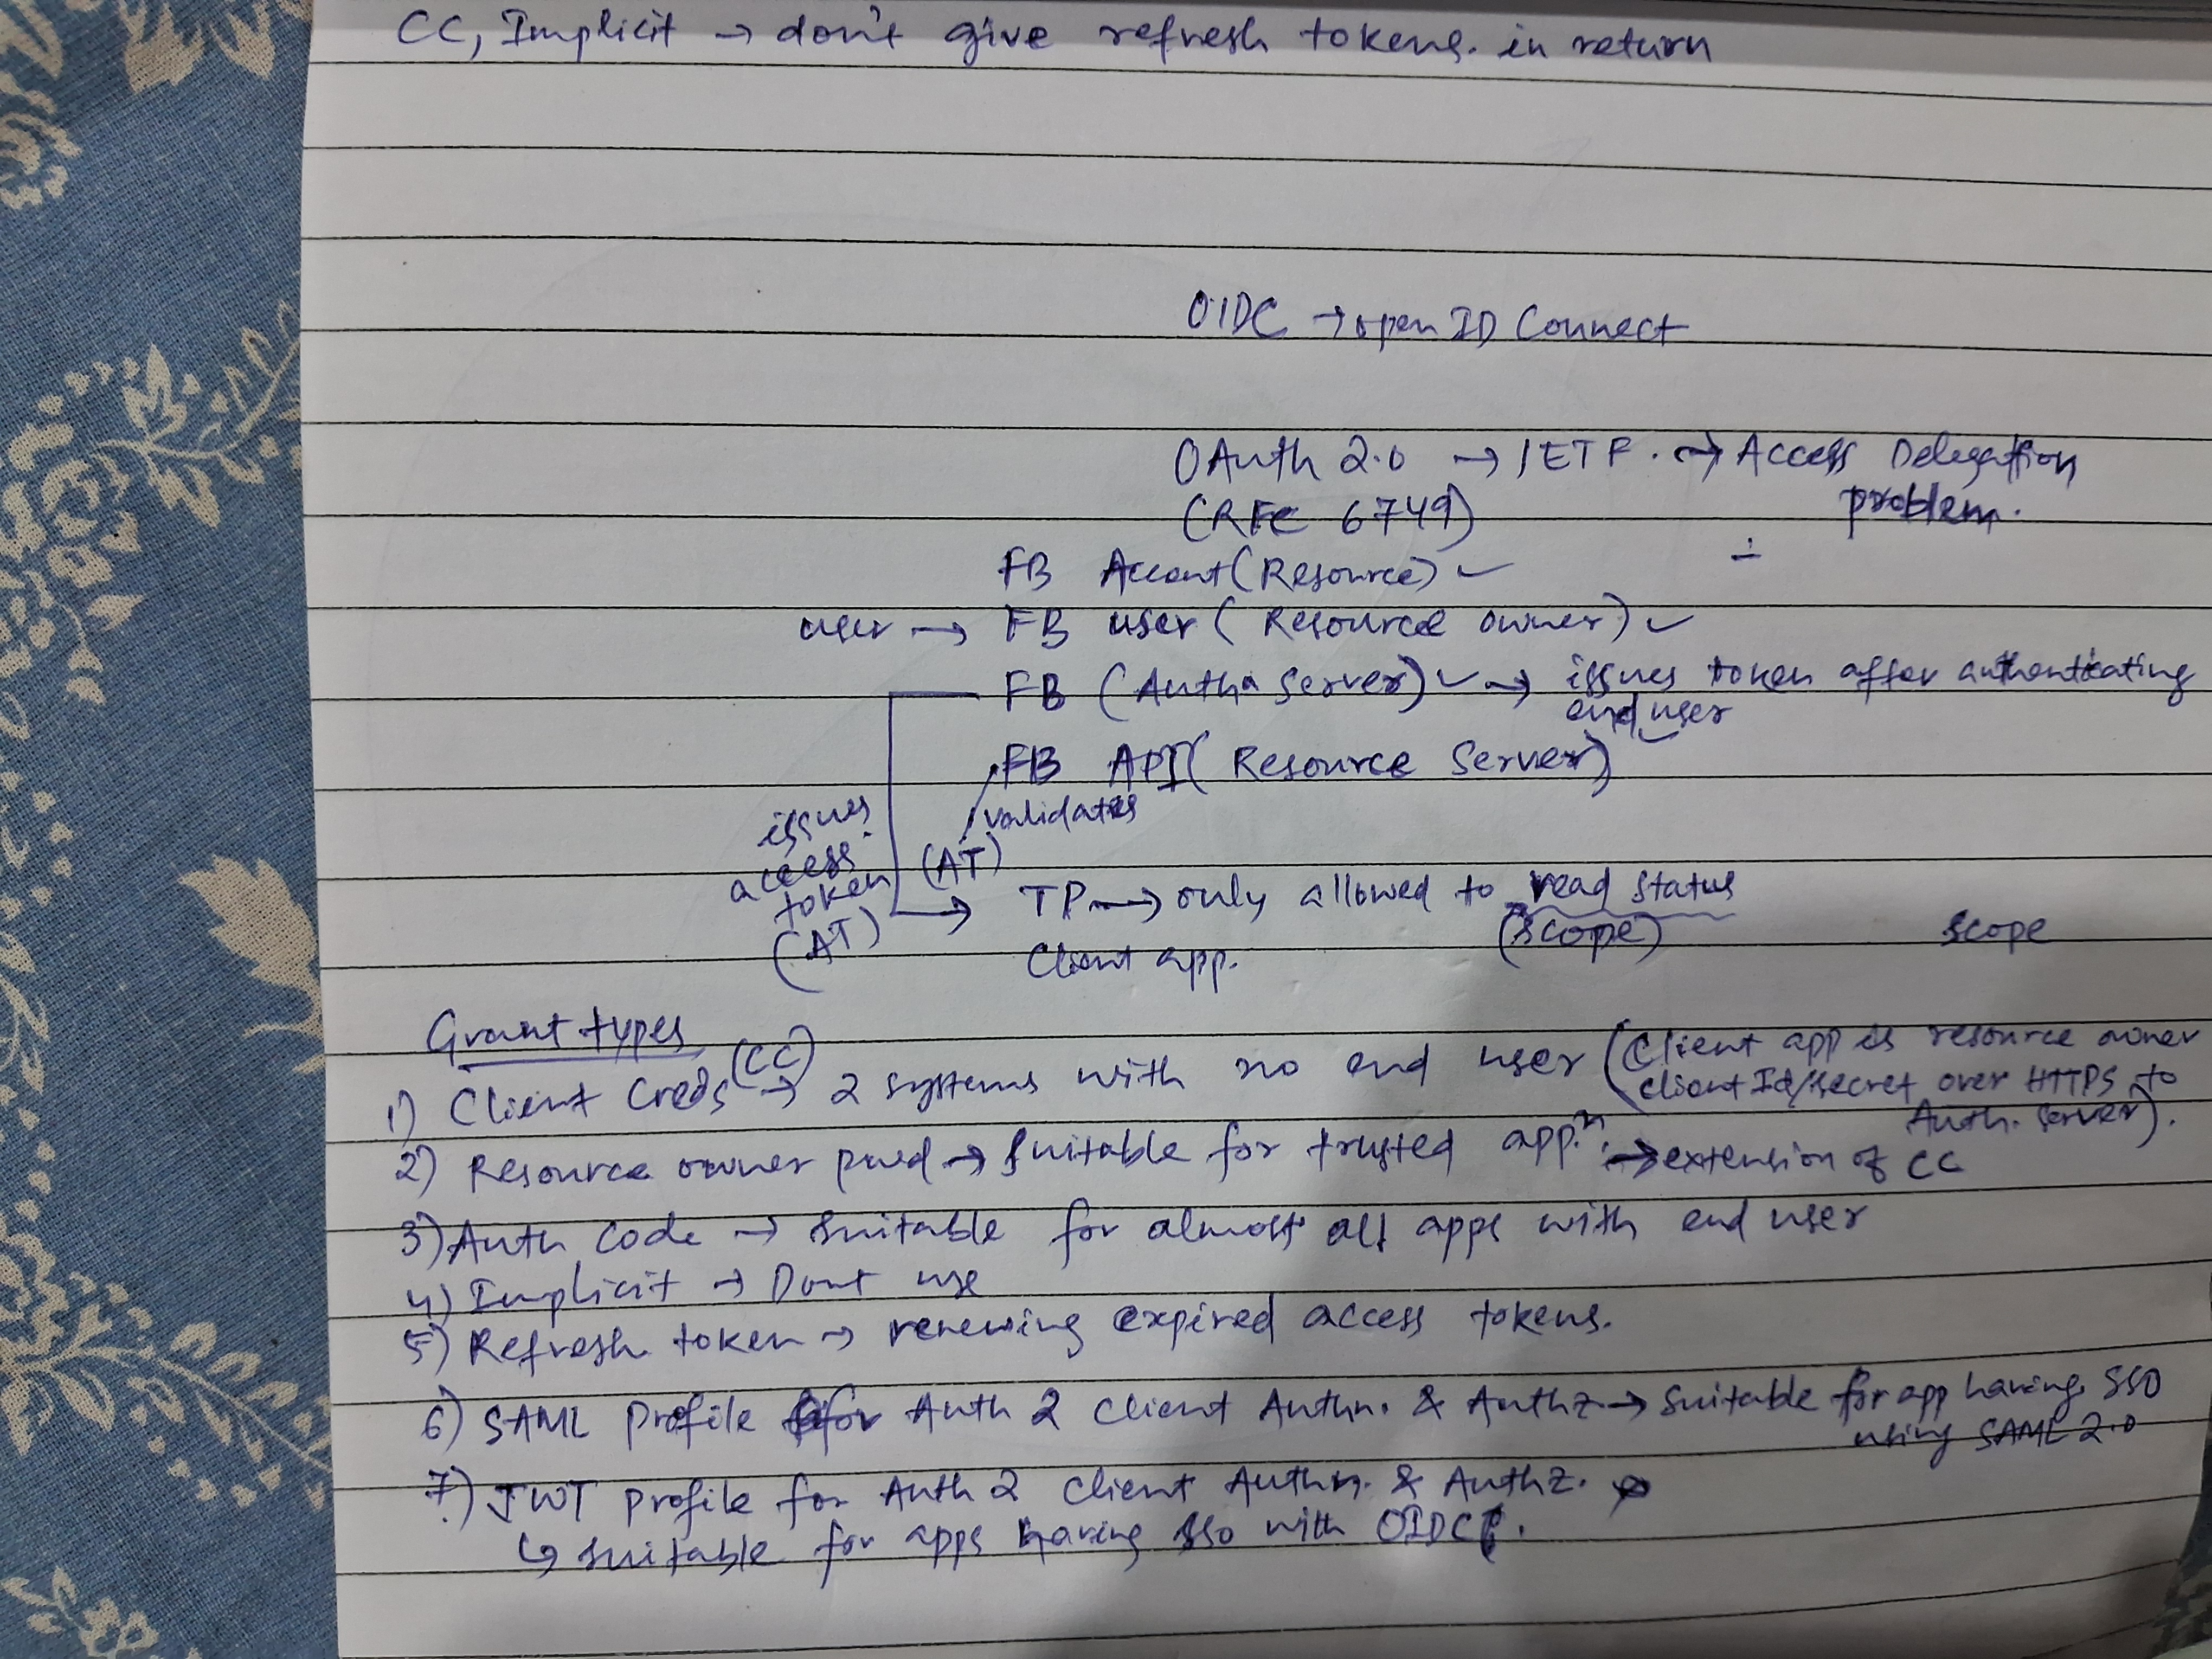 CC, Implicit → don't give refresh tokens. in return
OIDC → open ID Connect
OAuth 2.0 → IETF. → Access Delegation
(RFC 6749) problem.
FB Account (Resource) ✓
user → FB user (Resource owner) ✓
FB (Auth Server) ✓ → issues token after authenticating
end user
FB API (Resource Server) ✓
validates
issues
access
token (AT)
(AT)
TP → only allowed to read status
(scope) scope
Client app.
Grant types
1) Client Creds (CC) → 2 systems with no end user (Client app is resource owner
client Id/secret over HTTPS to
Auth. Server).
2) Resource owner pwd → suitable for trusted app.n. → extension of CC
3) Auth Code → suitable for almost all apps with end user
4) Implicit → Dont use
5) Refresh token → renewing expired access tokens.
6) SAML profile for Auth 2 client Authn. & Authz → suitable for app having SSO
using SAML 2.0
7) JWT profile for Auth 2 client Authn. & Authz.
↳ suitable for apps having SSO with OIDC.